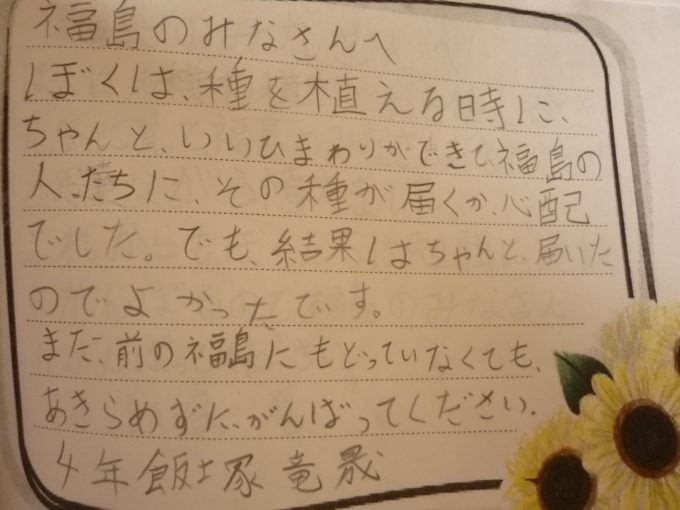 福島のみなさんへ
ぼくは、種を植える時に、
ちゃんと、いいひまわりができて、福島の
人たちに、その種が届くか、心配
でした。でも、結果はちゃんと、届いた
のでよかったです。
まだ、前の福島にもどっていなくても、
あきらめずに、がんばってください。
4年飯塚竜晟